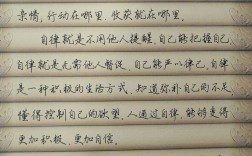 亲情,行动在哪里,收获就在哪里。
自律就是不用他人提醒,自己能把握自己,
自律就是无需他人督促,自己能严以律己,自律
是一种积极的生活方式,知道弥补自己的不足
懂得控制自己的欲望,人通过自律,能够变得
更加积极、更加自信。